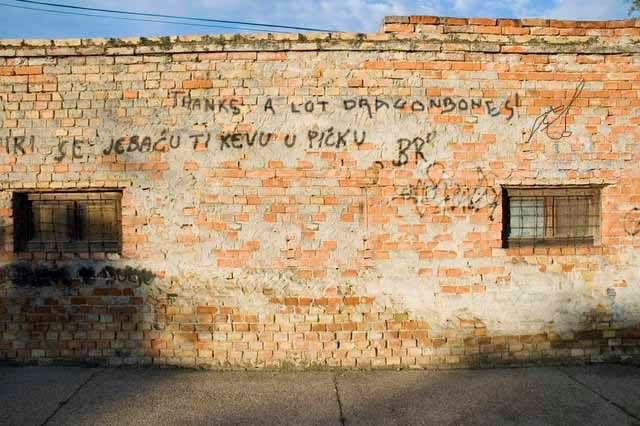 THANKS A LOT DRAGONBONES!
IRI SE JEBAČU TI KEVU U PIČKU
„BR"